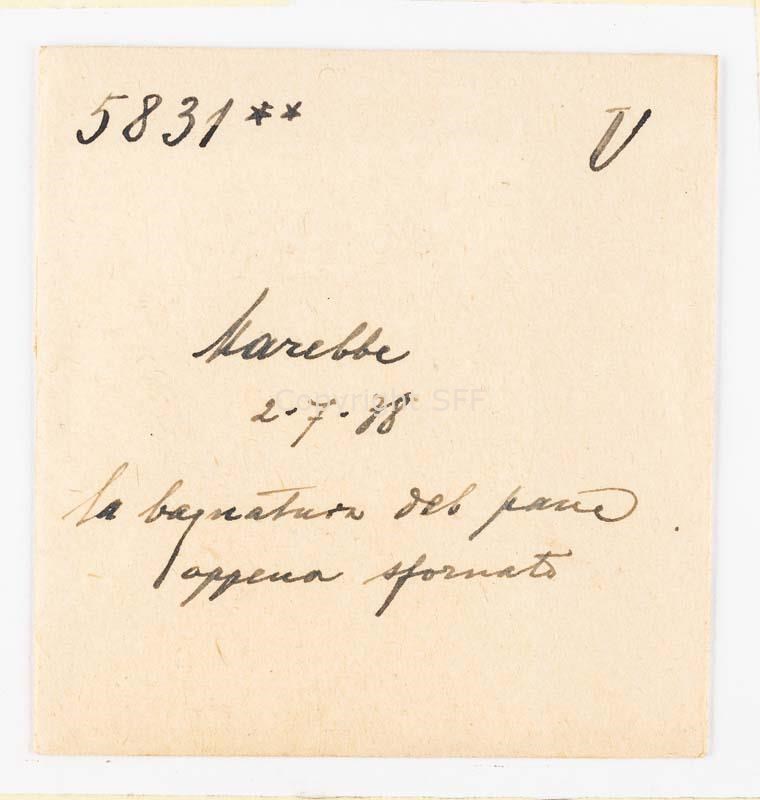 5831** V
Marebbe
Copyright SFF
2-7-38
la bagnatura del pane
appena sfornato